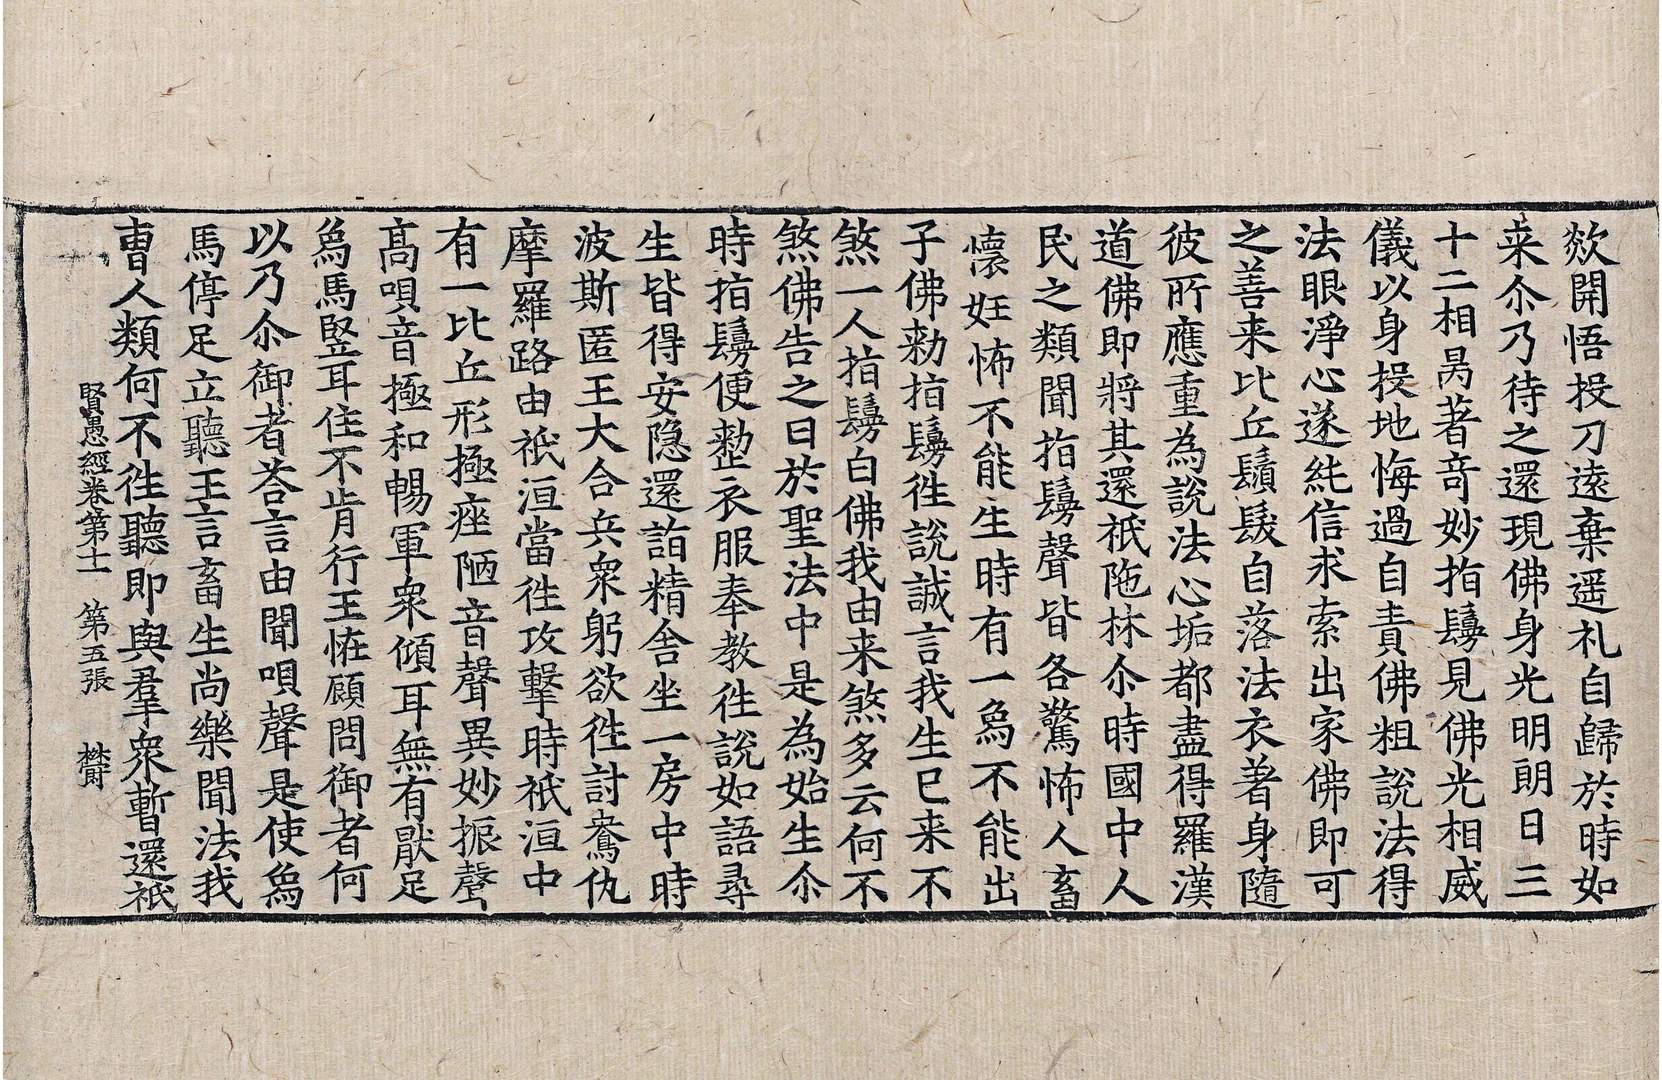 欻開悟投刀遠棄遥礼自歸於時如
来尒乃待之還現佛身光明朗日三
十二相昺著竒妙指鬘見佛光相威
儀以身投地悔過自責佛粗說法得
法眼淨心遂純信求索出家佛即可
之善来比丘鬚髮自落法衣著身隨
彼所應重為說法心垢都盡得羅漢
道佛即將其還祇陁林尒時國中人
民之類聞指鬘聲皆各驚怖人畜
懷妊怖不能生時有一為不能出
子佛勑指鬘徃說誠言我生已来不
煞一人指鬘白佛我由来煞多云何不
煞佛告之曰於聖法中是為始生尒
時指鬘便整衣服奉教徃說如語尋
生皆得安隐還詣精舍坐一房中時
波斯匿王大合兵衆躬欲徃討鴦仇
摩羅路由祇洹當徃攻擊時祇洹中
有一比丘形極痤陋音聲異妙振聲
髙唄音極和暢軍衆傾耳無有厭足
爲馬竪耳住不肯行王恠顧問御者何
以乃尒御者荅言由聞唄聲是使爲
馬停足立聽王言畜生尚樂聞法我
曺人類何不徃聽即與羣衆暫還祇
賢愚經卷第十一 第五張